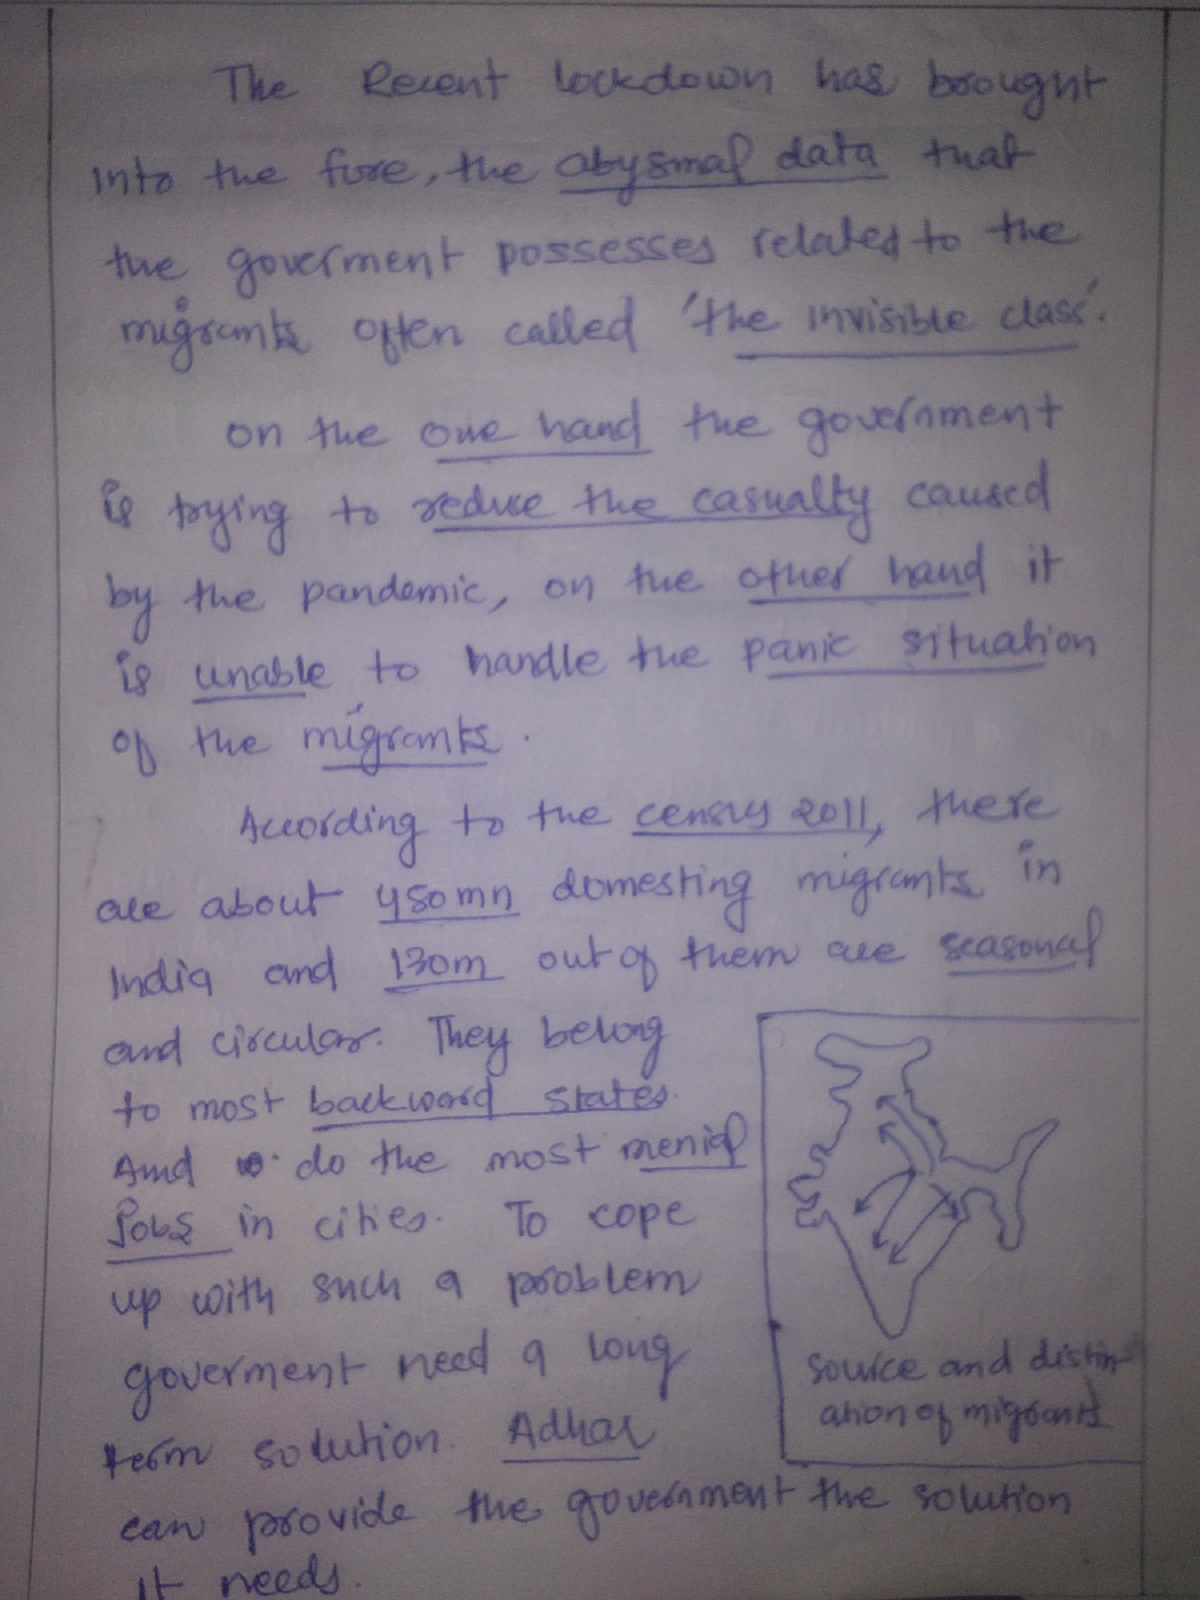 The Recent lockdown has brought
into the fore, the abysmal data that
the goverment possesses related to the
migrants often called 'the invisible class'.
on the one hand the government
is trying to reduce the casualty caused
by the pandemic, on the other hand it
is unable to handle the panic situation
of the migrants.
According to the census 2011, there
are about 450mn domesting migrants in
India and 130m out of them are seasonal
and circular. They belong
to most backward states.
And do the most menial
Jobs in cities. To cope
up with such a problem
goverment need a long
term solution. Adhar
can provide the government the solution
it needs.
source and distin-
ation of migrants